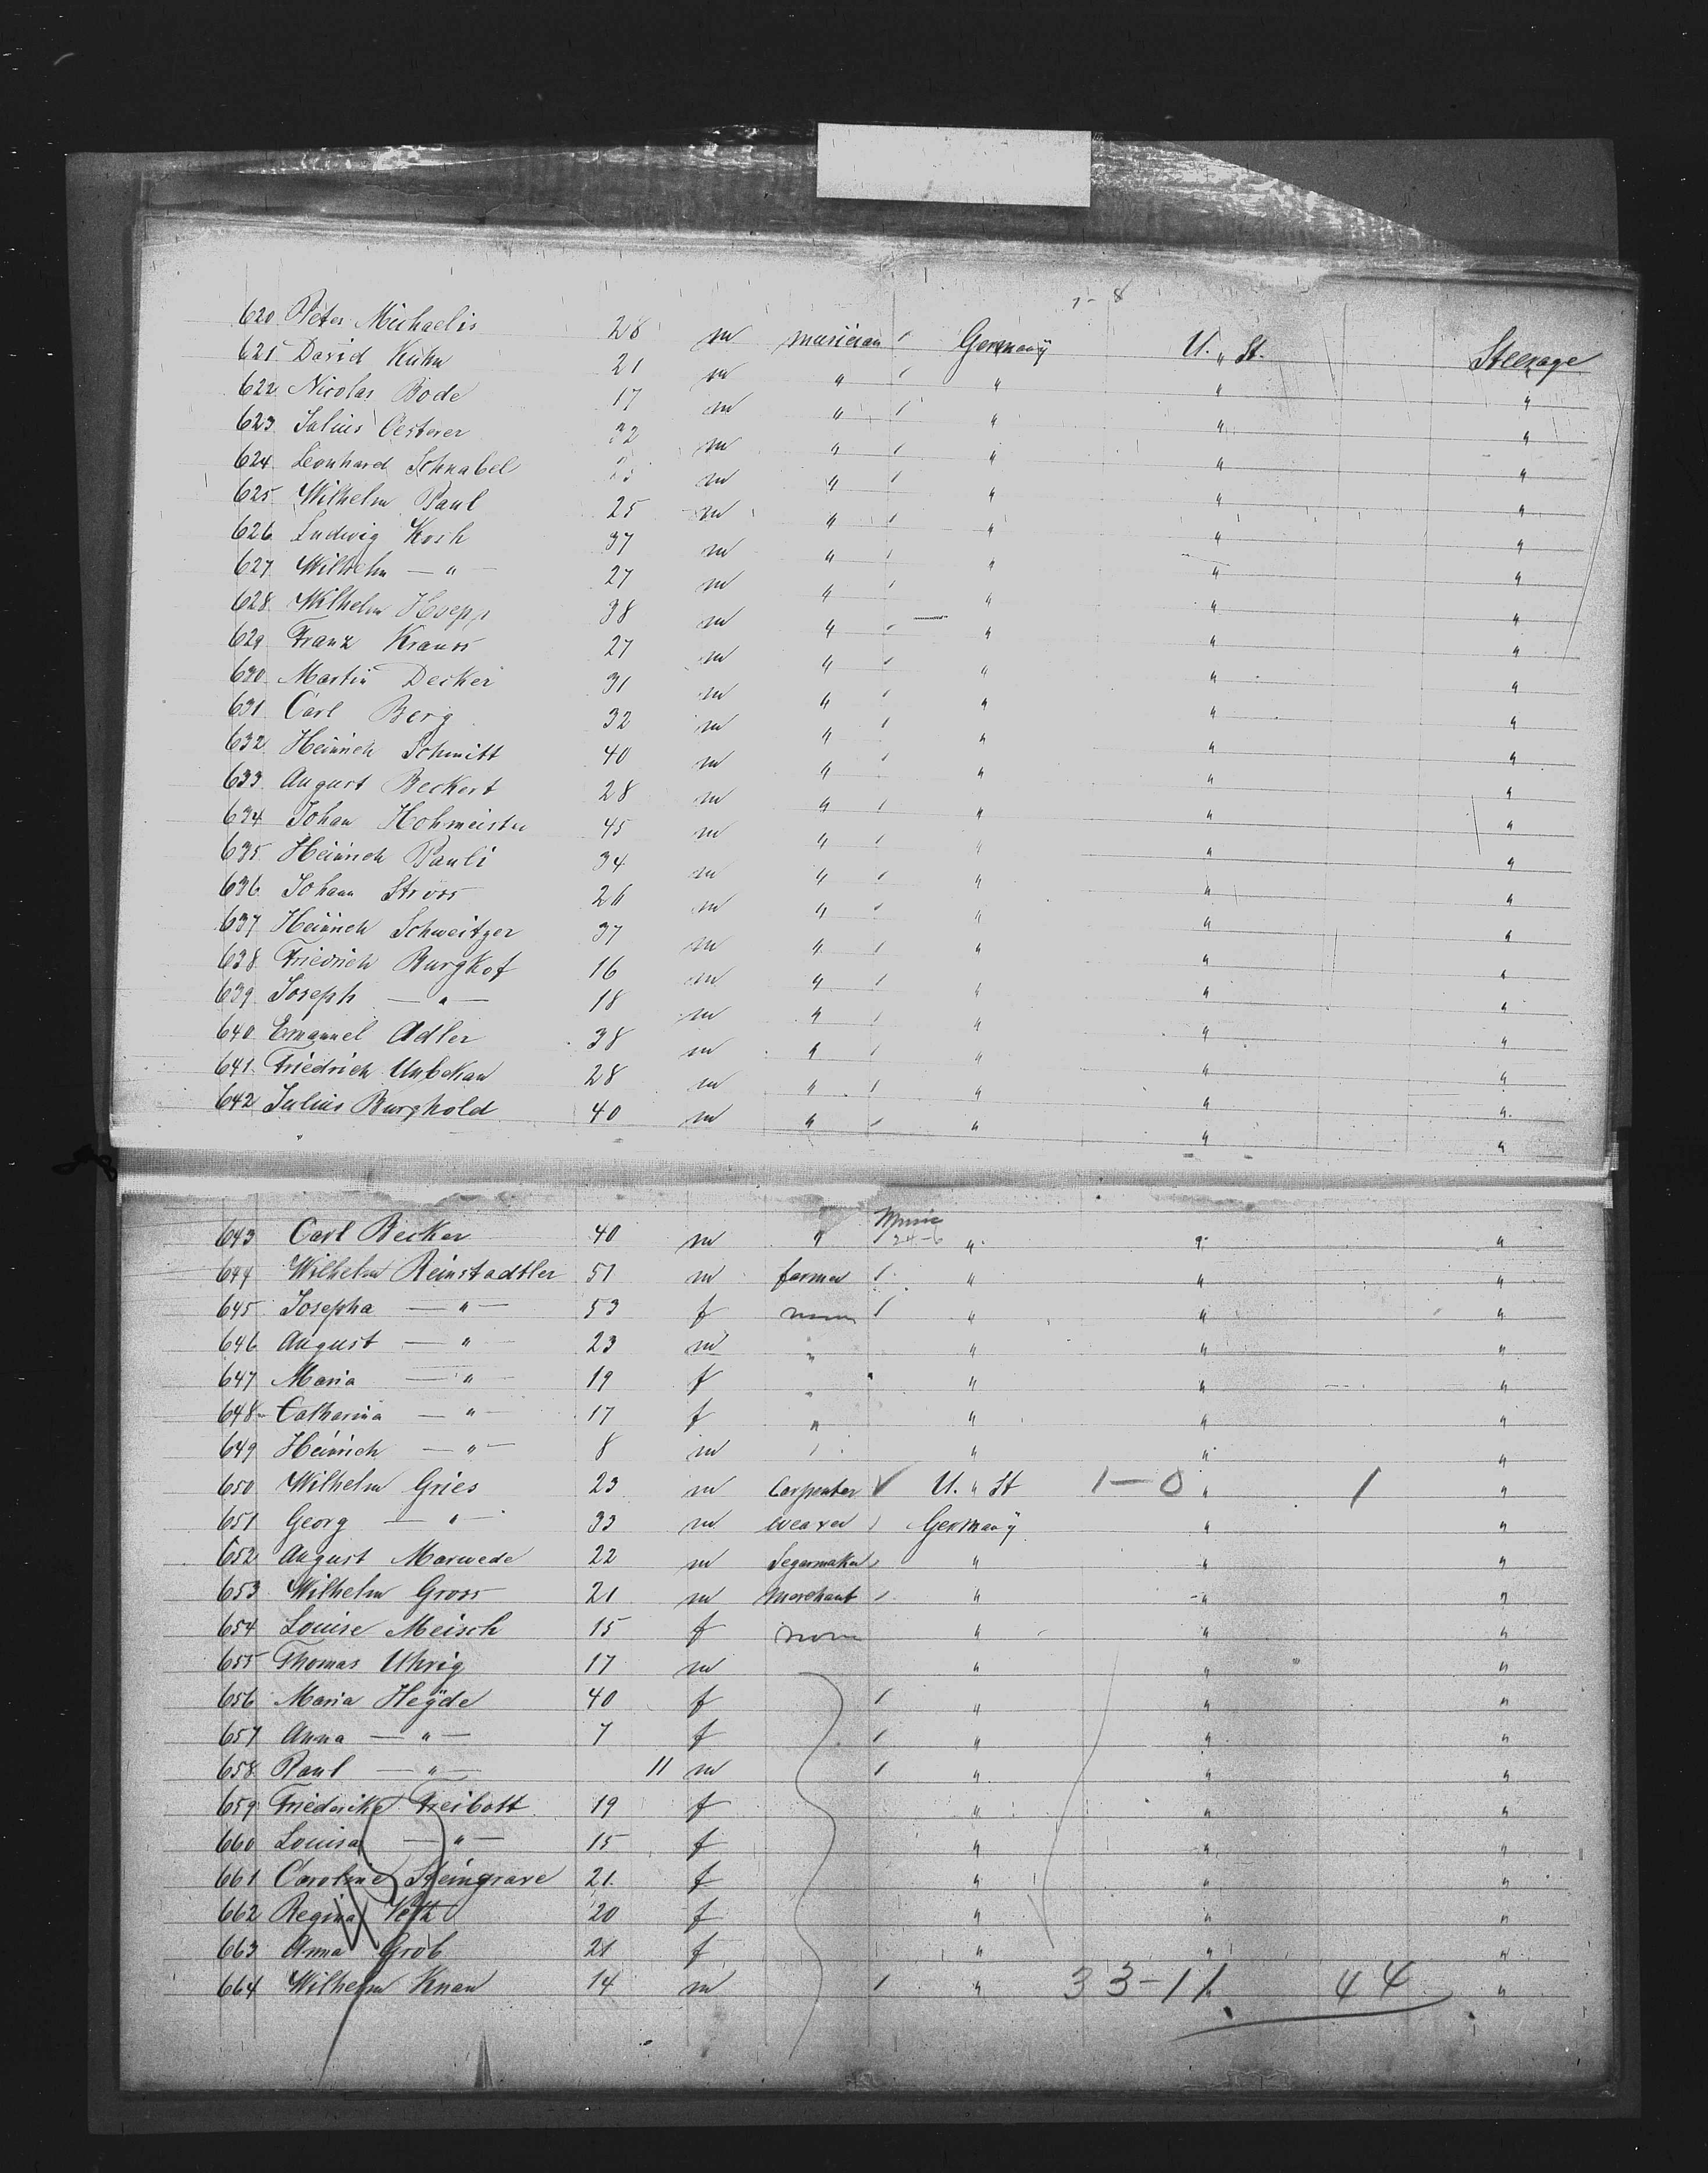 1 - 8
620 Peter Michaelis 28 m musician Germany U. " St. Steerage
621 David Kuhn 21 m " " " "
622 Nicolas Bode 17 m " " " "
623 Julius Oesterer 32 m " " " "
624 Leonhard Schnabel m " " " "
625 Wilhelm Paul 25 m " " " "
626 Ludwig Kosh 37 m " " " "
627 Wilhelm — " — 27 m " " " "
628 Wilhelm 38 m " " " "
629 Franz Krauss 27 m " " " "
630 Martin Decker 31 m " " " "
631 Carl Berg 32 m " " " "
632 Heinrich Schmitt 40 m " " " "
633 August Beckert 28 m " " " "
634 Johan Hohmeister 45 m " " " "
635 Heinrich Pauli 34 m " " " "
636 Johann Stross 26 m " " " "
637 Heinrich Schweitzer 37 m " " " "
638 Friedrich Burgkof 16 m " " " "
639 Joseph — " — 18 m " " " "
640 Emanuel Adler 38 m " " " "
641 Friedrich Unbekan 28 m " " " "
642 Julius Burghold 40 m " " " "
643 Carl Becker 40 m " Music 24-6 " " "
644 Wilhelm Reinstadtler 51 m farmer " " "
645 Josepha — " — 53 f none " " "
646 August — " — 23 m " " " "
647 Maria — " — 19 f " " " "
648 Catharina — " — 17 f " " " "
649 Heinrich — " — 8 m " " " "
650 Wilhelm Gries 23 m Carpenter U. " St 1-0 " 1 "
651 Georg — " — 33 m weaver Germany " "
652 August Marwede 22 m Segarmaker " " "
653 Wilhelm Gross 21 m Merchant " " "
654 Louise Meisch 15 f none " " "
655 Thomas Uhrig 17 m " " "
656 Maria Heyde 40 f " " "
657 Anna — " — 7 f " " "
658 Paul — " — 11 m " " "
659 Friederike Freibott 19 f " " "
660 Louisa — " — 15 f " " "
661 Caroline Steingrave 21 f " " "
662 Regina Veth 20 f " " "
663 Anna Grob 21 f " " "
664 Wilhelm Knau 14 m " 33-11 " 44 "